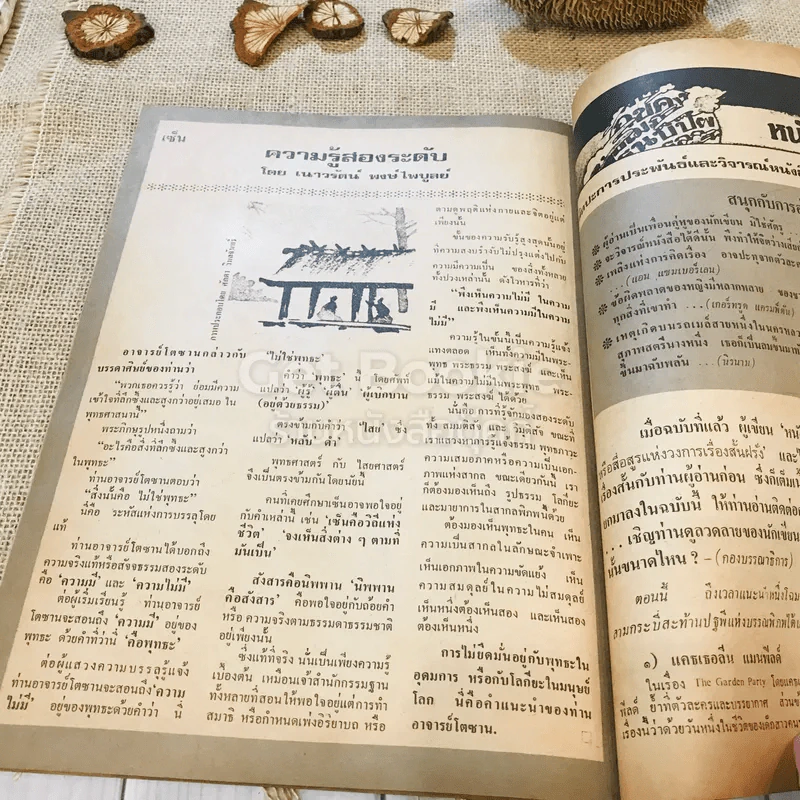 เซ็น
ความรู้สองระดับ
โดย เนาวรัตน์ พงษ์ไพบูลย์
อาจารย์โตซานกล่าวกับ
บรรดาศิษย์ของท่านว่า
"พวกเธอควรรู้ว่า ย่อมมีความ
เข้าใจที่ลึกซึ้งและสูงกว่าอยู่เสมอ ใน
พุทธศาสนานี้"
พระภิกษุรูปหนึ่งถามว่า
"อะไรคือสิ่งที่ลึกซึ้งและสูงกว่า
ในพุทธะ"
ท่านอาจารย์โตซานตอบว่า
"สิ่งนั้นคือ ไม่ใช่พุทธะ"
นี่คือ รหัสแห่งการบรรลุโดย
แท้
ท่านอาจารย์โตซานได้บอกถึง
ความจริงแท้หรือสัจจธรรมสองระดับ
คือ 'ความมี' และ 'ความไม่มี'
ต่อผู้เริ่มเรียนรู้ ท่านอาจารย์
โตซานจะสอนถึง 'ความมี' อยู่ของ
พุทธะ ด้วยคำที่ว่านี่ 'คือพุทธะ'
ต่อผู้แสวงความบรรลุรู้แจ้ง
ท่านอาจารย์โตซานจะสอนถึง 'ความ
ไม่มี' อยู่ของพุทธะด้วยคำว่า นี่
'ไม่ใช่พุทธะ'
คำว่า 'พุทธะ' นี้ โดยศัพท์
แปลว่า 'ผู้รู้' 'ผู้ตื่น' 'ผู้เบิกบาน'
(อยู่ด้วยธรรม)
ตรงข้ามกับคำว่า 'ไสย' ซึ่ง
แปลว่า 'หลับ'
พุทธศาสตร์ กับ ไสยศาสตร์
จึงเป็นตรงข้ามกันโดยนัยนี้
คนที่เคยศึกษาเซ็นอาจพอใจอยู่
กับคำเหล่านี้ เช่น 'เซ็นคือวิถีแห่ง
ชีวิต' 'จงเห็นสิ่งต่าง ๆ ตามที่
มันเป็น'
สังสารคือนิพพาน 'นิพพาน
คือสังสาร' คือพอใจอยู่กับถ้อยคำ
หรือ ความจริงตามธรรมดาธรรมชาติ
อยู่เพียงนั้น
ซึ่งแท้ที่จริง นั่นเป็นเพียงความรู้
เบื้องต้น เหมือนเจ้าสำนักกรรมฐาน
ทั้งหลายที่สอนให้พอใจอยู่แต่การทำ
สมาธิ หรือกำหนดเพ่งอิริยาบถ หรือ
ตามดูพฤติแห่งกายและจิตอยู่แต่
เพียงนั้น
ขั้นของความรับรู้สูงสุดนั้นอยู่
ที่ความสงบรำงับไม่ปรุงแต่งไปกับ
ความมีความเป็น ของสิ่งทั้งหลาย
ทั้งปวงเหล่านั้น ดังโวหารที่ว่า
"พึงเห็นความไม่มี ในความ
มี และพึงเห็นความมีในความ
ไม่มี"
ความรู้ในขั้นนี้เป็นความรู้แจ้ง
แทงตลอด เห็นทั้งความมีในพระ-
พุทธ พระธรรม พระสงฆ์ และเห็น
แม้ความไม่มีในพระพุทธ พระ-
ธรรม พระสงฆ์ ได้ด้วย
นั่นคือ การที่รู้จักมองสองระดับ
ทั้ง สมมติสัจ และ วิมุติสัจ ขณะที่
เราแสวงหาการรู้แจ้งธรรม พุทธภาวะ
ความเสมอภาคหรือความเป็นเอก-
ภาพแห่งสากล ขณะเดียวกันนี้ เรา
ก็ต้องมองเห็นถึง รูปธรรม โลกียะ
และมายาการในสากลพิภพนี้ด้วย
ต้องมองเห็นพุทธะในคน เห็น
ความเป็นสากลในลักษณะจำเพาะ
เห็นเอกภาพในความขัดแย้ง เห็น
ความสมดุลย์ในความไม่สมดุลย์
เห็นหนึ่งต้องเห็นสอง และเห็นสอง
ต้องเห็นหนึ่ง
การไม่ยึดมั่นอยู่กับพุทธะใน
อุดมการ หรือกับโลกียะในมนุษย์
โลก นี่คือคำแนะนำของท่าน
อาจารย์โตซาน.
การประพันธ์และวิจารณ์หนังสื
สนุกกับการอ่
ผู้อ่านเป็นเพื่อนคู่หูของนักเขียน มิใช่ศัตรู
จะวิจารณ์หนังสือได้ดีนั้น
เหลิงแห่งการคิดเรื่อง
ข้อผิดพลาดของหญิงมีหลากหลาย
ทุกสิ่งที่เขาทำ
เหตุเกิดบนรถเมล์สายหนึ่งในนครหลวง
สุภาพสตรีนางหนึ่ง
ขึ้นมาฉับพลัน ...(นิรนาม)
เมื่อฉบับที่แล้ว ผู้เขียน 'หนั
หรือสื่อสูรแห่งวงการเรื่องสั้นฝรั่ง' และ
เรื่องสั้นกับท่านผู้อ่านก่อน
ยกมาลงในฉบับนี้ ให้ท่านอ่านติดต่อ
... เชิญท่านดูลวดลายของนักเขียน
นั้นขนาดไหน ? – (กองบรรณาธิการ)
ตอนนี้ ถึงเวลาแนะนำหนึ่งใน
ลามกระบี่สะท้านปฐพีแห่งบรรณพิภพได้
๑) แคธเธอลีน แมนฟีลด์
ในเรื่อง The Garden Party
ฟีลด์ ย้ำที่ตัวละครและบรรยากาศ
เรื่องนี้ว่าด้วยวันหนึ่งในชีวิตของเด็กสาว